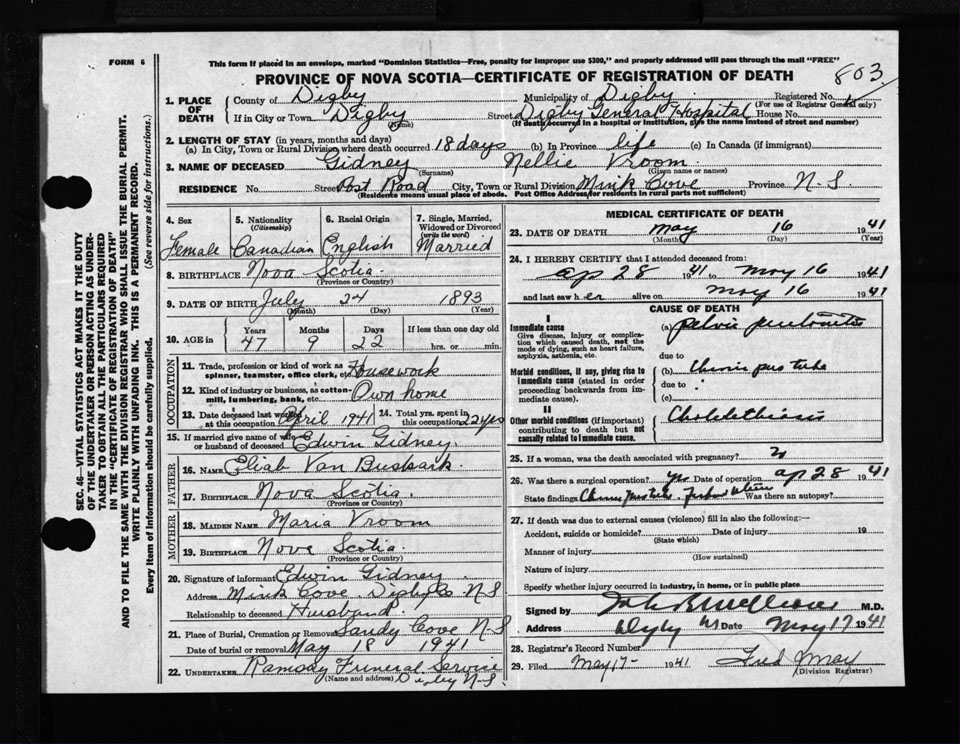 FORM 6
This form if placed in an envelope, marked "Dominion Statistics—Free, penalty for improper use $300," and properly addressed will pass through the mail "FREE"
PROVINCE OF NOVA SCOTIA—CERTIFICATE OF REGISTRATION OF DEATH
803
1. PLACE OF DEATH
County of Digby Municipality of Digby Registered No.
(For use of Registrar General only)
If in City or Town Digby Street Digby General Hospital House No.
(Name) (If death occurred in a hospital or institution, give the name instead of street and number)
2. LENGTH OF STAY (in years, months and days)
(a) In City, Town or Rural Division where death occurred 18 days (b) In Province life (c) In Canada (if immigrant)
3. NAME OF DECEASED Gidney Nellie Vroom
(Surname) (Given name or names)
RESIDENCE No. Street Post Road City, Town or Rural Division Mink Cove Province N-S.
(Residence means usual place of abode. Post Office Address for residents in rural parts not sufficient)
4. Sex Female
5. Nationality (Citizenship) Canadian
6. Racial Origin English
7. Single, Married, Widowed or Divorced (write the word) Married
8. BIRTHPLACE Nova Scotia
(Province or Country)
9. DATE OF BIRTH July 24 1893
(Month) (Day) (Year)
10. AGE in Years Months Days If less than one day old
47 9 22 hrs. or min.
OCCUPATION
11. Trade, profession or kind of work as spinner, teamster, office clerk, etc. Housework
12. Kind of industry or business, as cotton-mill, lumbering, bank, etc. Own home
13. Date deceased last worked at this occupation April 1941 14. Total yrs. spent in this occupation 22 yrs
15. If married give name of wife or husband of deceased Edwin Gidney.
FATHER
16. NAME Eliab Van Buskark.
17. BIRTHPLACE Nova Scotia.
(Province or Country)
MOTHER
18. MAIDEN NAME Maria Vroom
19. BIRTHPLACE Nova Scotia
(Province or Country)
20. Signature of informant Edwin Gidney.
Address Mink Cove Digby Co N-S
Relationship to deceased Husband.
21. Place of Burial, Cremation or Removal Sandy Cove N S
Date of burial or removal May 18 1941
22. UNDERTAKER Ramsay Funeral Service
(Name and address) Digby N-S.
MEDICAL CERTIFICATE OF DEATH
23. DATE OF DEATH May 16 1941
(Month) (Day) (Year)
24. I HEREBY CERTIFY that I attended deceased from:
ap 28 1941 to May 16 1941
and last saw her alive on May 16 1941
CAUSE OF DEATH
I
Immediate cause
Give disease, injury or complication which caused death, not the mode of dying, such as heart failure, asphyxia, asthenia, etc.
(a) pelvic
due to
Morbid conditions, if any, giving rise to immediate cause (stated in order proceeding backwards from immediate cause).
(b)
due to
(c)
II
Other morbid conditions (if important) contributing to death but not causally related to immediate cause.
Cholelithiasis
25. If a woman, was the death associated with pregnancy?
26. Was there a surgical operation? yes Date of operation ap 28 1941
State findings Was there an autopsy?
27. If death was due to external causes (violence) fill in also the following:—
Accident, suicide or homicide? Date of injury 19
(State which)
Manner of injury
(How sustained)
Nature of injury
Specify whether injury occurred in industry, in home, or in public place
Signed by M.D.
Address Digby NS Date May 17 1941
28. Registrar's Record Number
29. Filed May 17- 1941 Fred
(Division Registrar)
SEC. 46—VITAL STATISTICS ACT MAKES IT THE DUTY
OF THE UNDERTAKER OR PERSON ACTING AS UNDER-
TAKER TO OBTAIN ALL THE PARTICULARS REQUIRED
IN THE "CERTIFICATE OF REGISTRATION OF DEATH"
AND TO FILE THE SAME WITH THE DIVISION REGISTRAR WHO SHALL ISSUE THE BURIAL PERMIT.
WRITE PLAINLY WITH UNFADING INK. THIS IS A PERMANENT RECORD.
Every item of Information should be carefully supplied. (See reverse side for instructions.)